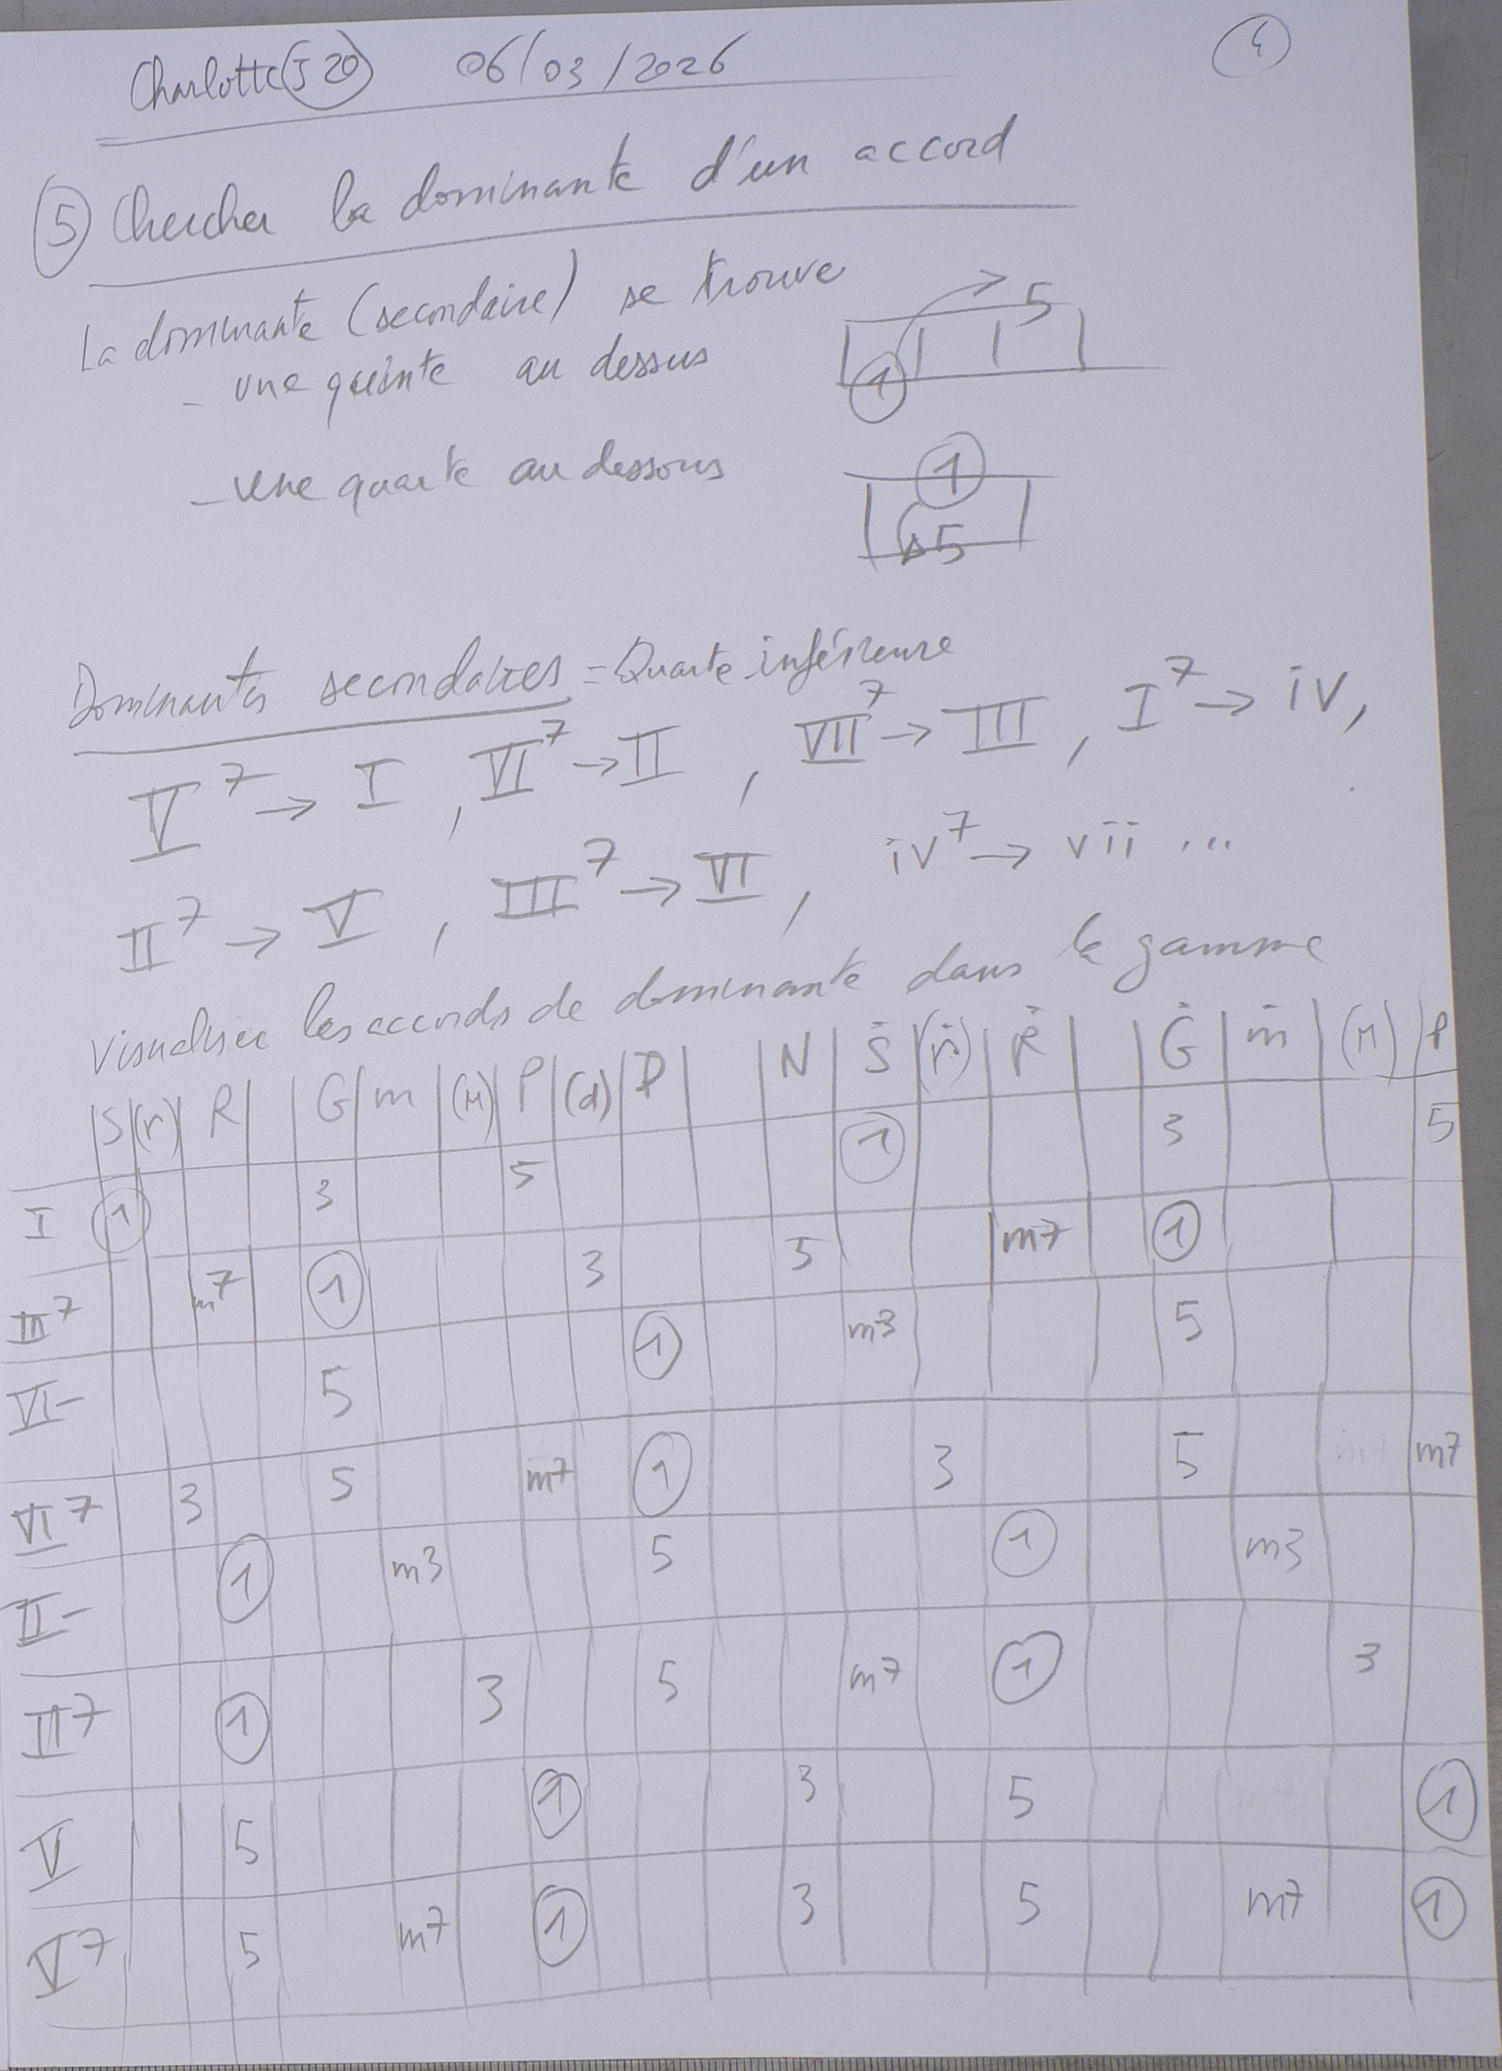 Charlotte (J 20) 06/03/2026
4
⑤ Chercher la dominante d'un accord
La dominante (secondaire) se trouve
- une quinte au dessus
① 5
- une quarte au dessous
① 5
Dominantes secondaires = Quarte inférieure
V7 → I, VI7 → II, VII7 → III, I7 → iv,
II7 → V, III7 → VI, iv7 → vii ...
Visualiser les accords de dominante dans la gamme
S (r) R G m (M) P (d) D N Ṡ (ṙ) Ṙ Ġ ṁ (M) P
I ① 3 5 ① 3 5
III7 m7 ① 3 5 m7 ①
VI- 5 ① m3 5
VI7 3 5 m7 ① 3 5 m7
II- ① m3 5 ① m3
II7 ① 3 5 m7 ① 3
V 5 ① 3 5 ①
V7 5 m7 ① 3 5 m7 ①